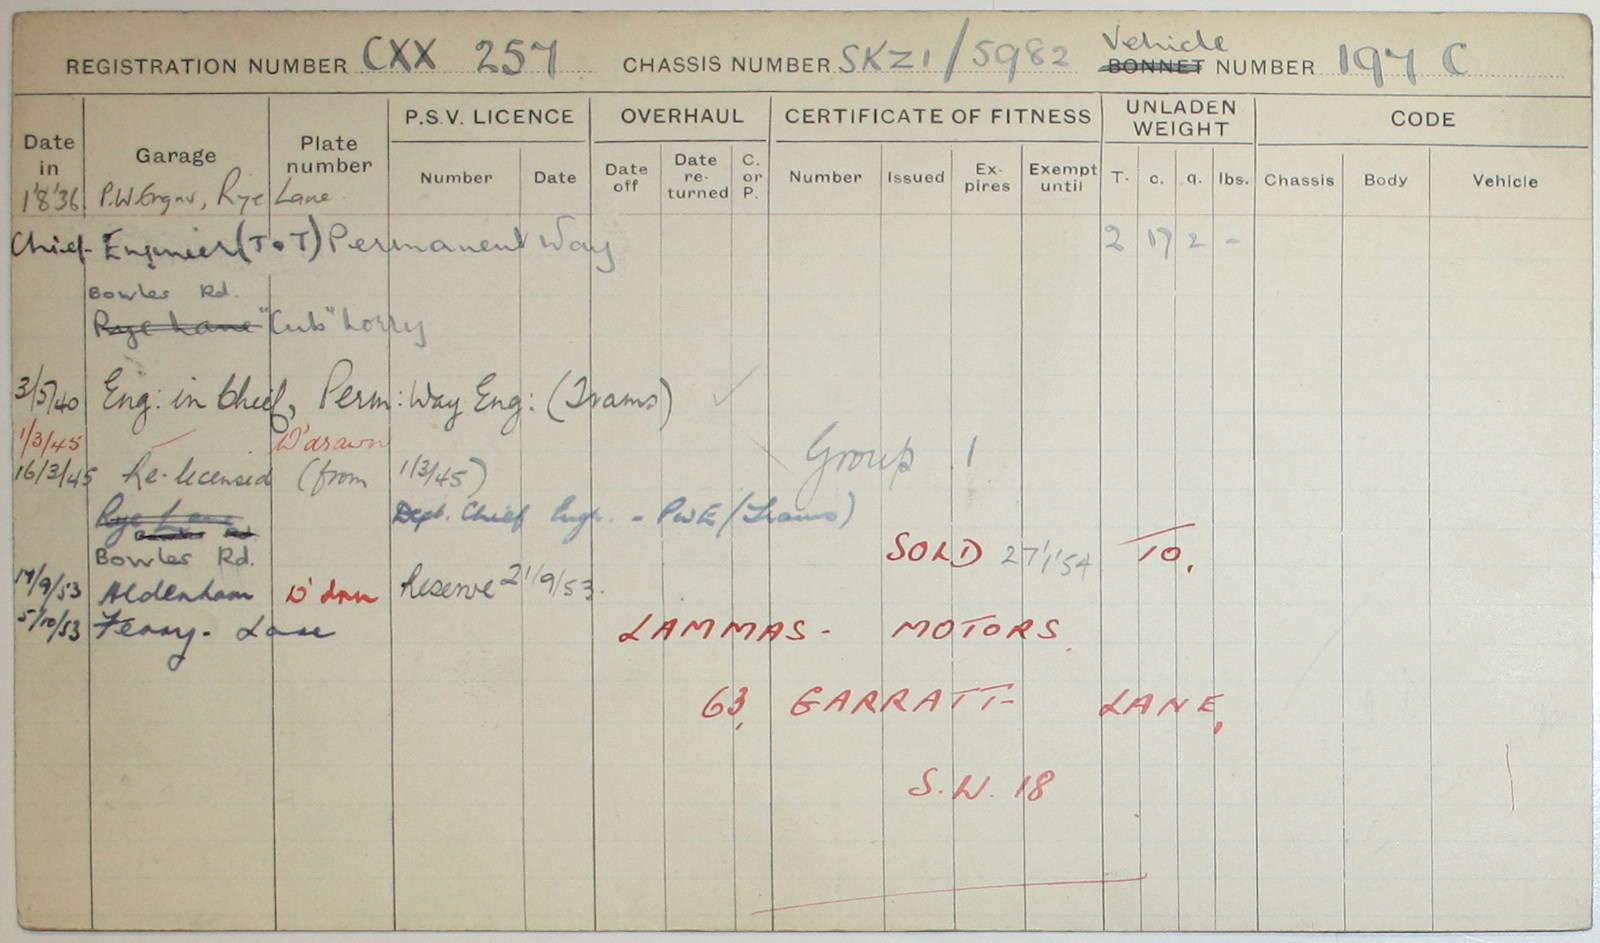 REGISTRATION NUMBER CXX 257 CHASSIS NUMBER SKZ1/5982 Vehicle BONNET NUMBER 197 C
Date in Garage Plate number P.S.V. LICENCE OVERHAUL CERTIFICATE OF FITNESS UNLADEN WEIGHT CODE
Number Date Date off Date re-turned C. or P. Number Issued Ex-pires Exempt until T. c. q. lbs. Chassis Body Vehicle
1'8'36 P.W. Engnr, Rye Lane
Chief Engineer (T o T) Permanent Way 2 17 2 -
Bowles Rd.
Rye Lane "Cub" Lorry
3/5/40 Eng: in Chief, Perm: Way Eng: (Trams)
1/3/45 W'drawn
Group 1
16/3/45 Re-licensed (from 1/3/45)
Rye Lane Dept. Chief Engr. - PWE (Trams)
SOLD 27/1/54 TO,
Bowles Rd.
17/9/53 Aldenham D'drn Reserve 21/9/53.
5/10/53 Ferry. Lane LAMMAS - MOTORS,
63, GARRATT- LANE,
S.W. 18